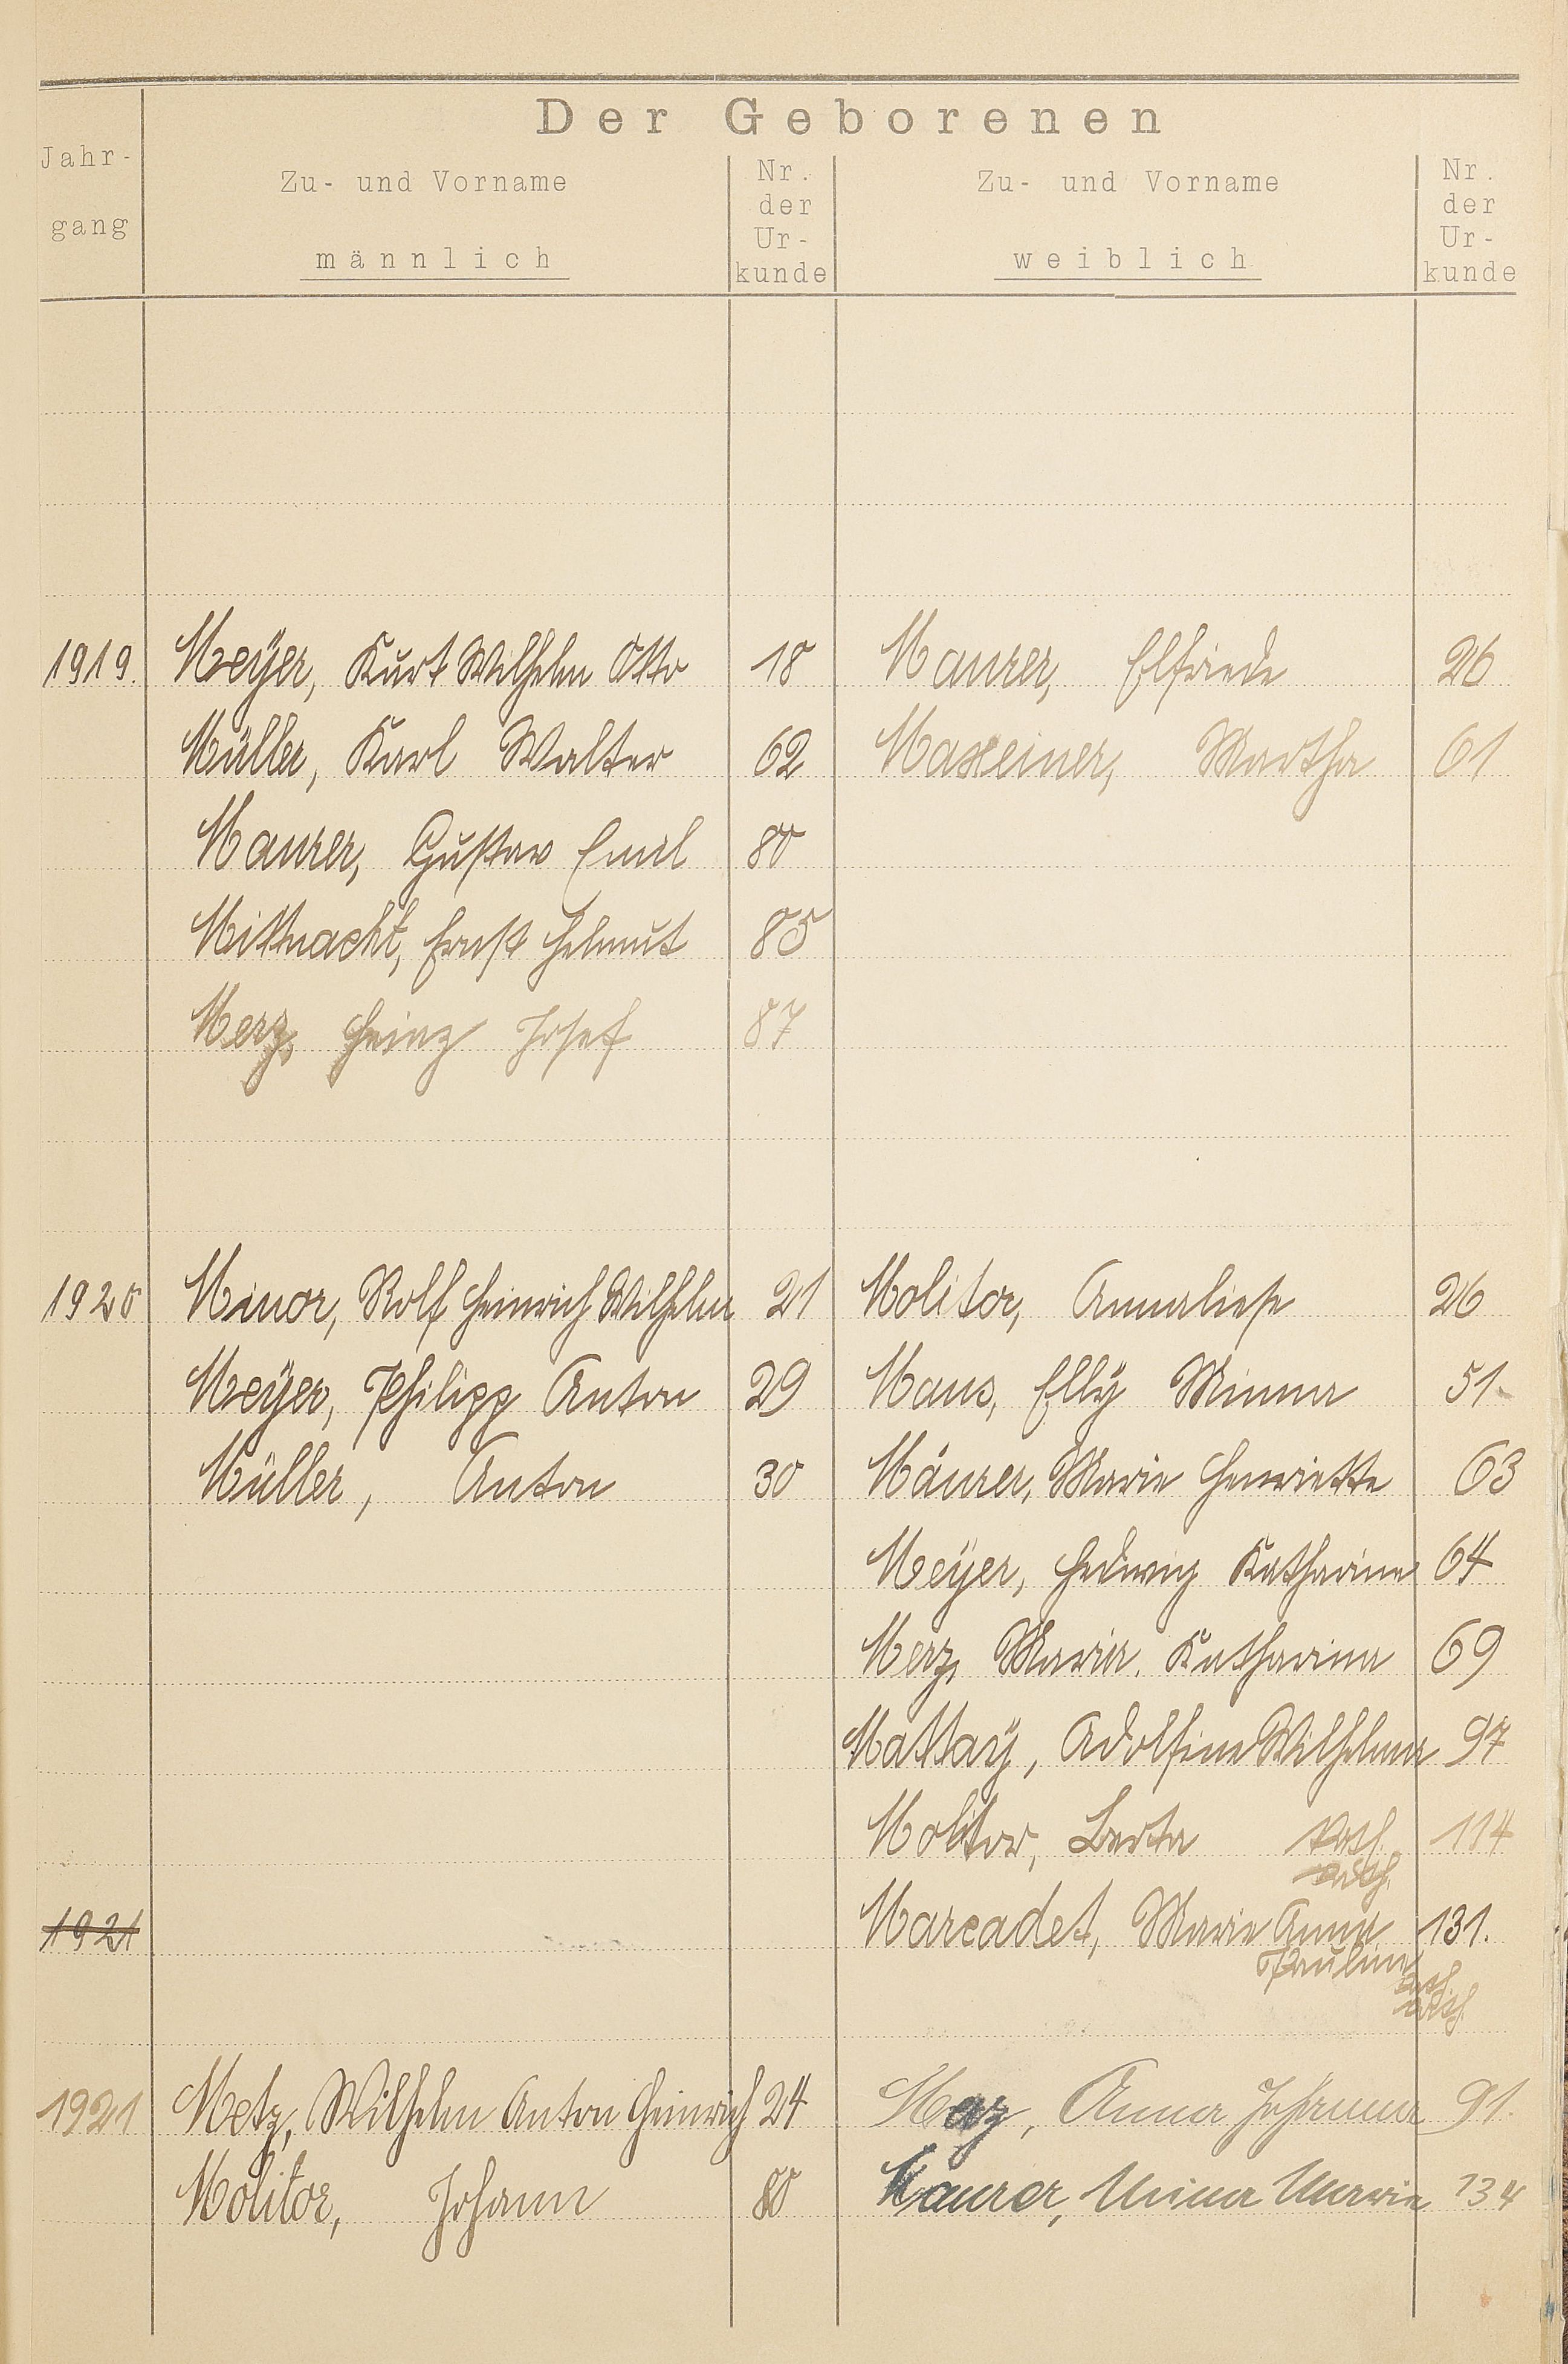 Der Geborenen
Jahr-
gang
Zu- und Vorname
männlich
Nr.
der
Ur-
kunde
Zu- und Vorname
weiblich
Nr.
der
Ur-
kunde
1919. Meÿer, Kurt Wilhelm Otto 18 Maurer, Elfriede 26
Müller, Karl Walter 62 Maxeiner, Martha 61
Maurer, Gustav Emil 80
Mittnacht, Ernst Helmut 85
Merz, Heinz Josef 87
1920 Minor, Rolf Heinrich Wilhelm 21 Molitor, Annaliese 26
Meÿer, Philipp Anton 29 Maus, Ellÿ Minna 51.
Müller, Anton 30 Mäurer, Marie Henriette 63
Meÿer, Hedwig Katharina 64
Merz, Maria Katharina 69
Mattaÿ, Adolfine Wilhelma 97
Molitor, Berta 114
1921 Marcadet, Marie Anna 131.
Paulina
1921 Metz, Wilhelm Anton Heinrich 24 May, Anna Johanna 91.
Molitor, Johann 80 Maurer, Minna Marie 134